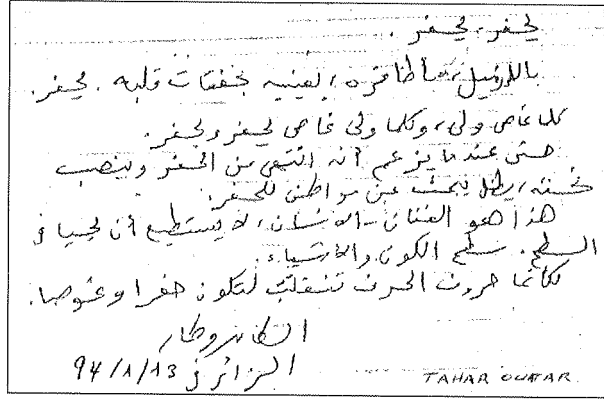 يحفر، يحفر.
بالإزميل، بأظافره، بعينيه بخفقات قلبه. يحفر.
كلما غاص ولى، وكلما ولى غاص يحفر ويحفر.
حتى عندما يزعم أنه انتهى من الحفر وينصب
تحفته، يظل يبحث عن مواطن للحفر.
هذا هو الفنان - الانسان، لا يستطيع أن يحيا في
السطح. سطح الكون والأشياء.
لكأنما حروف الحرف تنقلب لتكون حفرا وغوصا.
الطاهر وطار
الجزائر في 94/8/13
TAHAR OUATAR